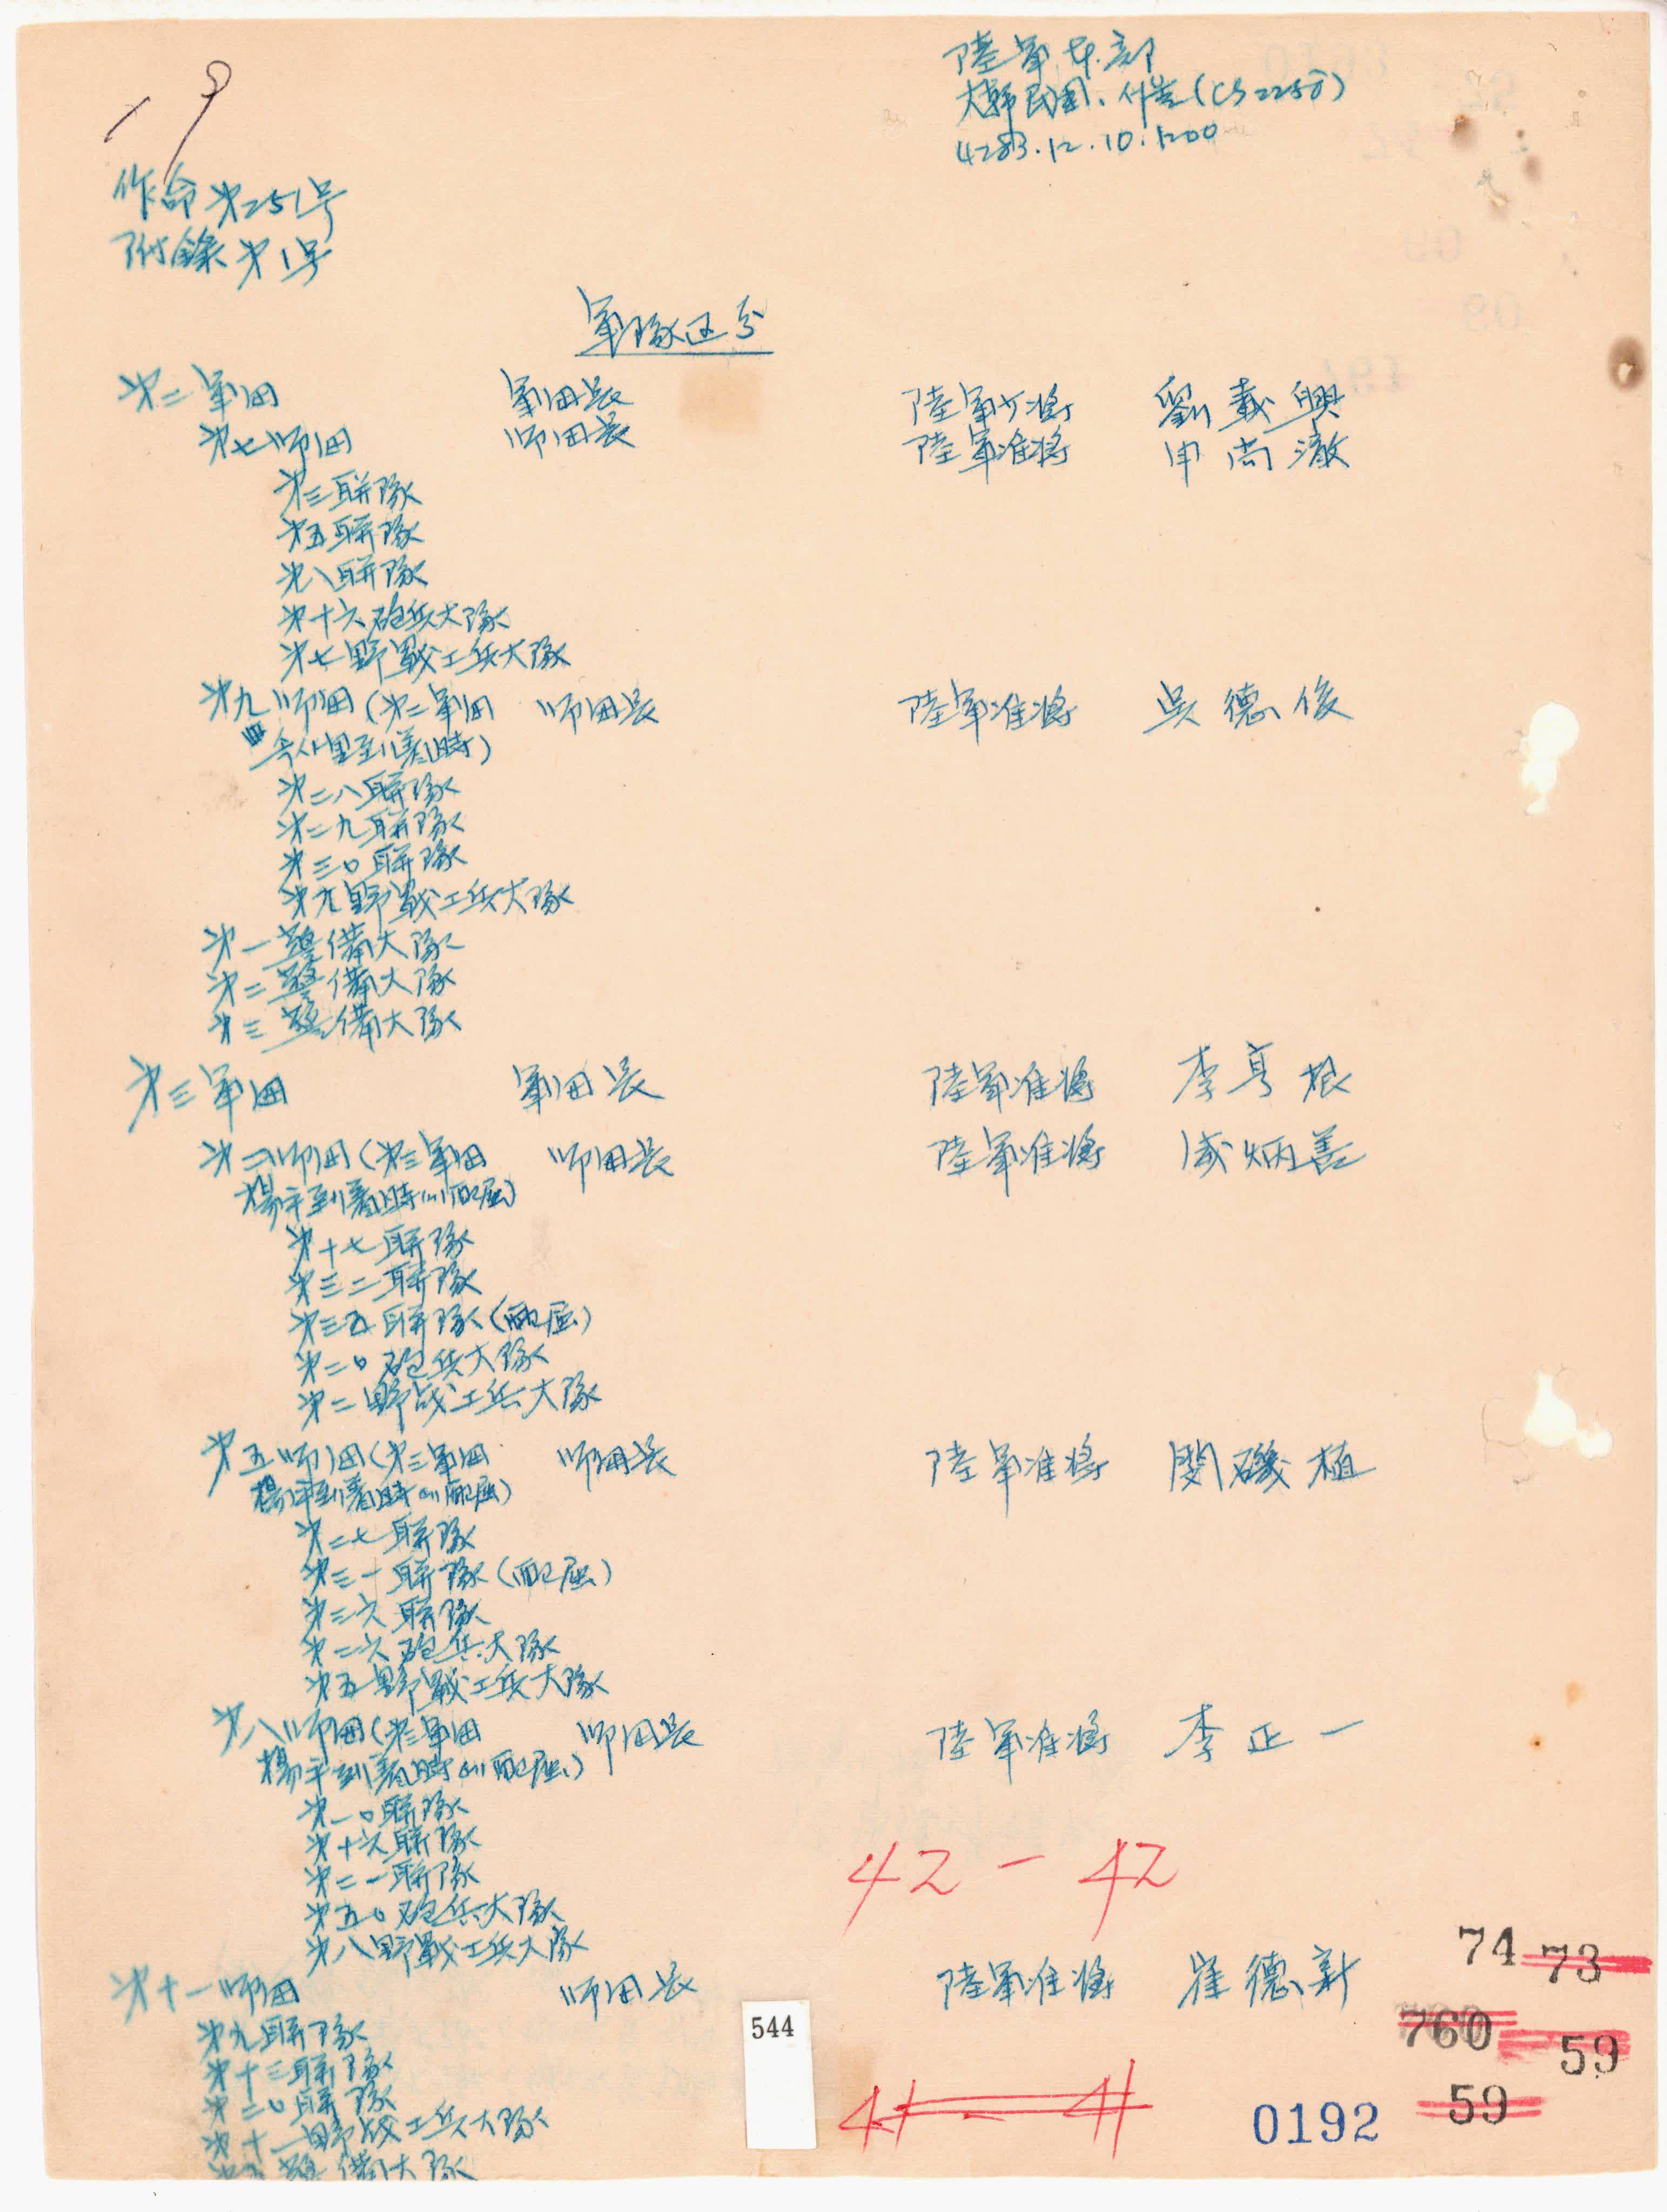 陸軍本部
大韓民國, 서울(CS2258)
4283.12.10.1200
作命 第251号
附錄 第1号
軍隊區分
第二軍団 軍団長 陸軍少將 劉載興
第七師団 師団長 陸軍准將 申尚澈
第三聯隊
第五聯隊
第八聯隊
第十六砲兵大隊
第七野戰工兵大隊
第九師団(第二軍団 師団長 陸軍准將 吳德俊
到着時)
第二八聯隊
第二九聯隊
第三0聯隊
第九野戰工兵大隊
第一警備大隊
第二警備大隊
第三警備大隊
第三軍団 軍団長 陸軍准將 李亨根
第二師団(第三軍団 師団長 陸軍准將 咸炳善
楊平到着時에配屬)
第十七聯隊
第三二聯隊
第三五聯隊(配屬)
第二0砲兵大隊
第二野战工兵大隊
第五師団(第三軍団 師団長 陸軍准將 閔磯植
楊平到着時에配屬)
第二七聯隊
第三一聯隊(配屬)
第三六聯隊
第二六砲兵大隊
第五野戰工兵大隊
第八師団(第三軍団 師団長 陸軍准將 李正一
楊平到着時에配屬)
第一0聯隊
第十六聯隊
第二一聯隊
第五0砲兵大隊
第八野戰工兵大隊
42-42
第十一師団 師団長 陸軍准將 崔德新
74 73
第九聯隊
544
760
第十三聯隊
59
第二0聯隊
41-41
0192
59
第十一野战工兵大隊
警備大隊